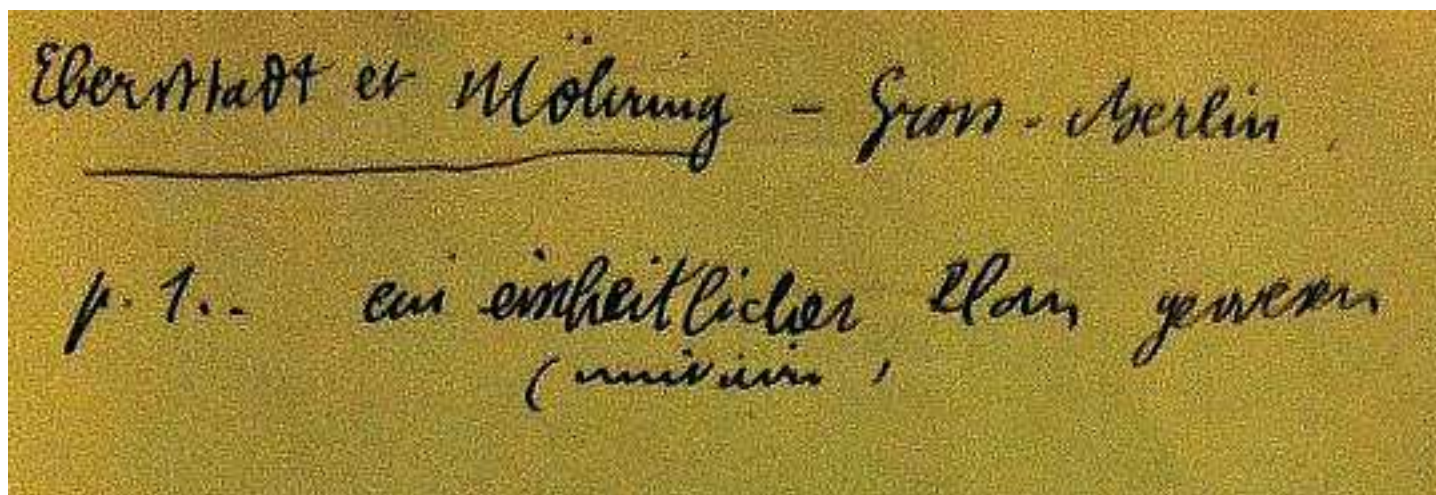 Eberstadt et Möhring - Gross-Berlin
p. 1.. ein einheitlicher Plan gewesen
(unitaire)